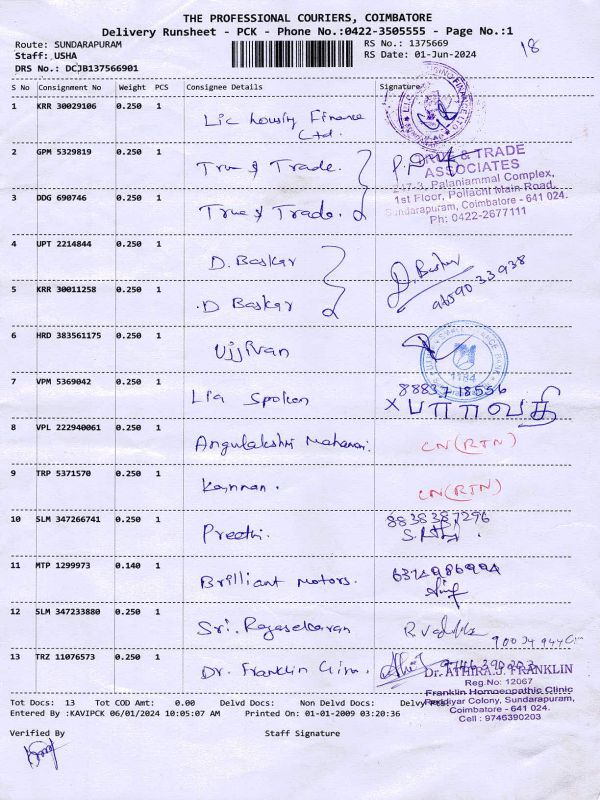 THE PROFESSIONAL COURIERS, COIMBATORE
Delivery Runsheet - PCK - Phone No.:0422-3505555 - Page No.:1
Route: SUNDARAPURAM
RS No.: 1375669
18
Staff: USHA
RS Date: 01-Jun-2024
DRS No.: DCJB137566901
S No Consignment No Weight PCS Consignee Details Signature
1 KRR 30029106 0.250 1 Lic housing Finance
Ltd.
2 GPM 5329819 0.250 1 True & Trade.
& TRADE
ASSOCIATES
247-3, Palaniammal Complex,
1st Floor, Pollachi Main Road,
Sundarapuram, Coimbatore - 641 024.
Ph: 0422-2677111
3 DDG 690746 0.250 1 True & Trade.
4 UPT 2214844 0.250 1 D. Baskar
D. Baskar
9659033938
5 KRR 30011258 0.250 1 D Baskar
6 HRD 383561175 0.250 1 Ujjivan
1184
7 VPM 5369042 0.250 1 Lia Spoken
8883718556
x பாரவதி
8 VPL 222940061 0.250 1 CN(RTN)
9 TRP 5371570 0.250 1 Kannan. CN(RTN)
10 SLM 347266741 0.250 1 Preethi. 8838387296
11 MTP 1299973 0.140 1 Brilliant Motors. 6374986994
12 SLM 347233880 0.250 1 Sri. Rajasekaran
13 TRZ 11076573 0.250 1 Dr. Franklin 9746390203
Dr. ATHIRA.J. FRANKLIN
Reg.No: 12067
Franklin Homoeopathic Clinic
Colony, Sundarapuram,
Coimbatore - 641 024.
Cell : 9746390203
Tot Docs: 13 Tot COD Amt: 0.00 Delvd Docs: Non Delvd Docs:
Entered By :KAVIPCK 06/01/2024 10:05:07 AM Printed On: 01-01-2009 03:20:36
Verified By Staff Signature